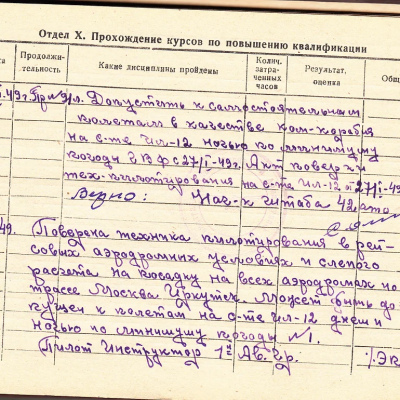 Отдел X. Прохождение курсов по повышению квалификации
Продолжи-
тельность
Какие дисциплины пройдены
Колич.
затра-
ченных
часов
Результат,
оценка
Общ
49г. При л. Допустить к самостоятельным
полетам в качестве ком-корабля
на с-те Ил-12 ночью по минимуму
погоды ГВФ с 27/I-49г. Акт поверки
тех. пилотирования на с-те Ил-12 от 27/I-49
Верно: Нач-к штаба 42 ато
49. Поверена техника пилотирования в рей-
совых аэродромных условиях и слепого
расчета на посадку на всех аэродромах по
трассе Москва Иркутск. Может быть до-
пущен к полетам на с-те Ил-12 днем и
ночью по минимуму погоды №1.
Пилот Инструктор 1го Ав. Гр.